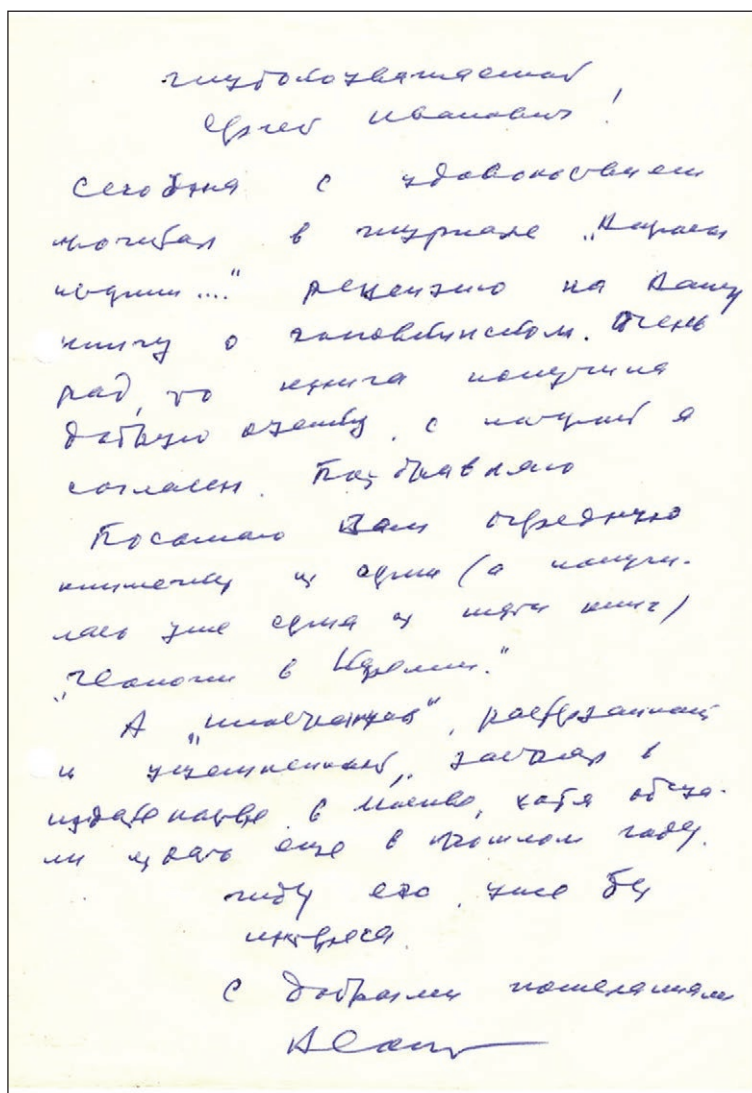 Глубокоуважаемый
Сергей Иванович!
Сегодня с удовольствием
прочитал в журнале „
рецензию на Вашу
книгу о . Очень
рад, что книга получила
добрую оценку, с которой я
согласен. Поздравляю
Посылаю Вам очередную
книжечку из серии (а получи-
лась уже серия из пяти книг)
„Геологи в Карелии."
А , растерзанный
и ущемленный, застрял в
издательстве в Москве, хотя обеща-
ли издать еще в прошлом году.
Жду его уже без
интереса.
С добрыми пожеланиями